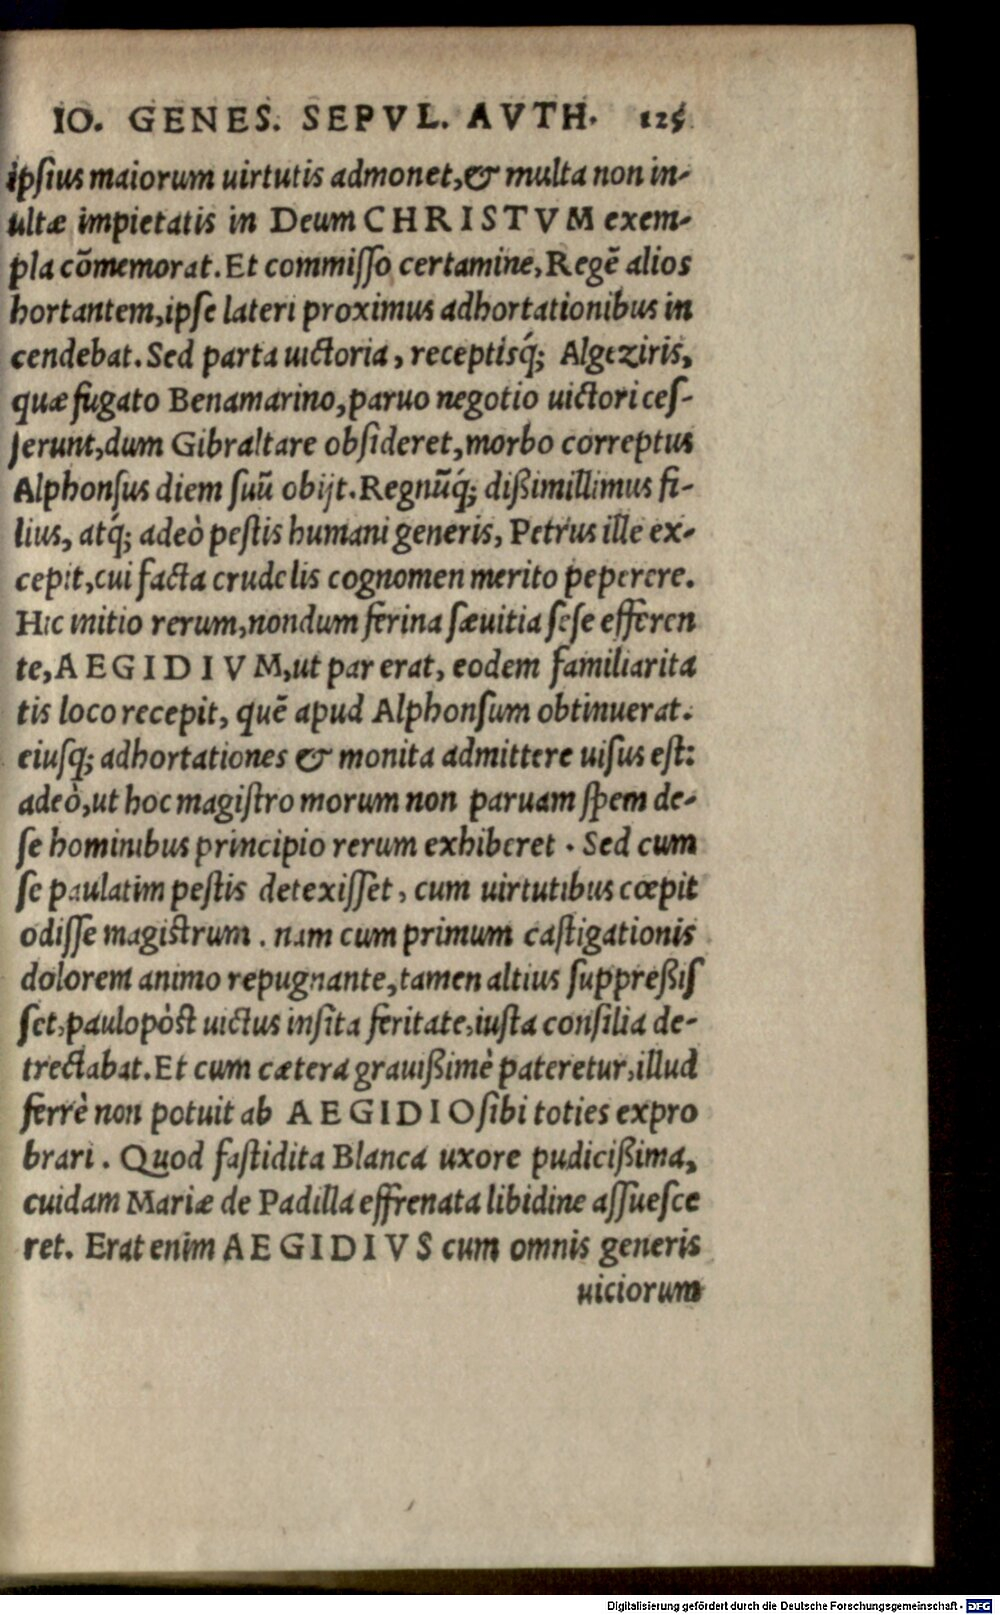 IO. GENES. SEPVL. AVTH. 125
ipſius maiorum uirtutis admonet,& multa non in-
ultæ impietatis in Deum CHRISTVM exem-
pla cõmemorat. Et commiſſo certamine, Regẽ alios
hortantem, ipſe lateri proximus adhortationibus in
cendebat. Sed parta uictoria, receptisq́; Algeziris,
quæ fugato Benamarino, paruo negotio uictori ceſ-
ſerunt, dum Gibraltare obſideret, morbo correptus
Alphonſus diem ſuũ obijt. Regnũq́; dißimillimus fi-
lius, atq́; adeò peſtis humani generis, Petrus ille ex-
cepit, cui facta crudelis cognomen merito peperere.
Hic initio rerum, nondum ferina ſæuitia ſeſe efferen
te, AEGIDIVM, ut par erat, eodem familiarita
tis loco recepit, quẽ apud Alphonſum obtinuerat.
eiuſq; adhortationes & monita admittere uiſus eſt:
adeò, ut hoc magiſtro morum non paruam ſpem de-
ſe hominibus principio rerum exhiberet. Sed cum
ſe paulatim peſtis detexiſſet, cum uirtutibus cœpit
odiſſe magiſtrum. nam cum primum caſtigationis
dolorem animo repugnante, tamen altius ſuppreßiſ
ſet, paulopòſt uictus inſita feritate, iuſta conſilia de-
trectabat. Et cum cætera grauißimè pateretur, illud
ferrè non potuit ab AEGIDIO ſibi toties expro
brari. Quod faſtidita Blanca uxore pudicißima,
cuidam Mariæ de Padilla effrenata libidine aſſueſce
ret. Erat enim AEGIDIVS cum omnis generis
uiciorum
Digitalisierung gefördert durch die Deutsche Forschungsgemeinschaft - DFG